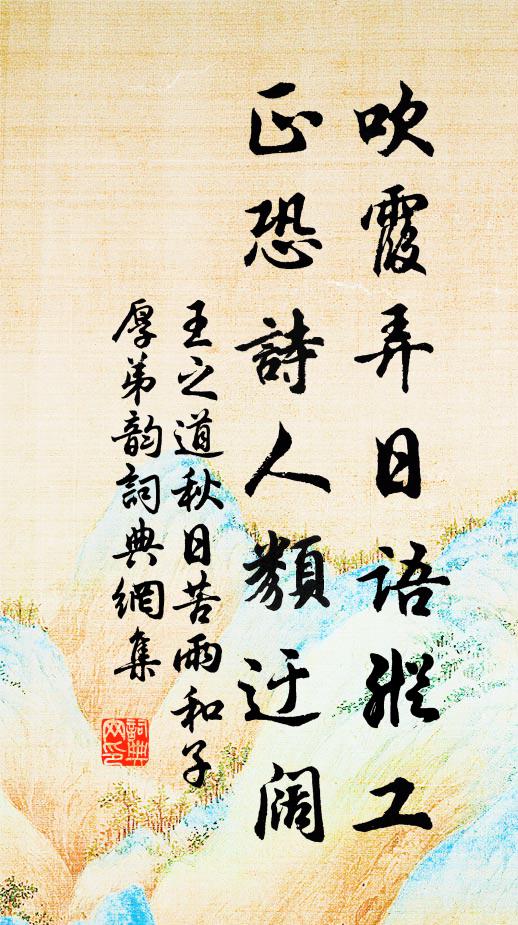 吹霞弄日語縱工
正恐詩人類迂闊
王之道秋日苦雨和子
厚弟韵詞典網集
詞典網印